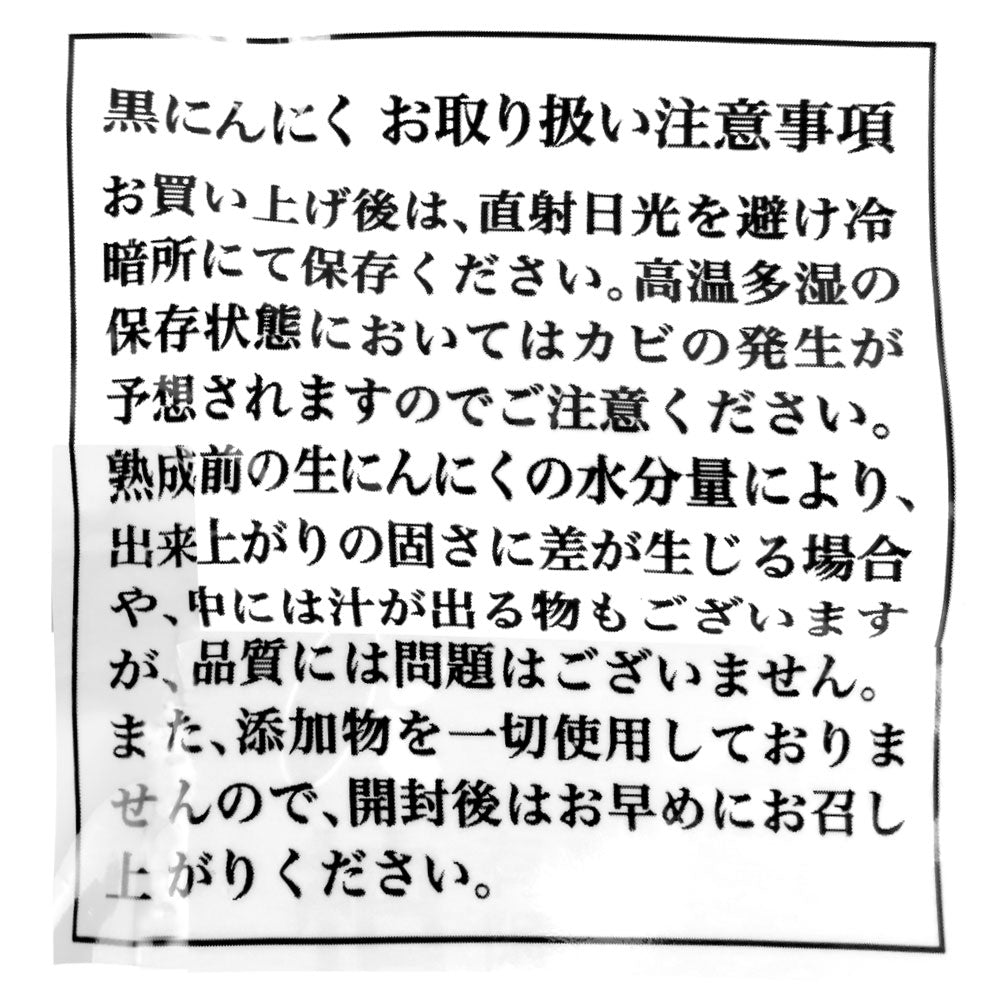 黒にんにく お取り扱い注意事項
お買い上げ後は、直射日光を避け冷
暗所にて保存ください。高温多湿の
保存状態においてはカビの発生が
予想されますのでご注意ください。
熟成前の生にんにくの水分量により、
出来上がりの固さに差が生じる場合
や、中には汁が出る物もございます
が、品質には問題はございません。
また、添加物を一切使用しておりま
せんので、開封後はお早めにお召し
上がりください。